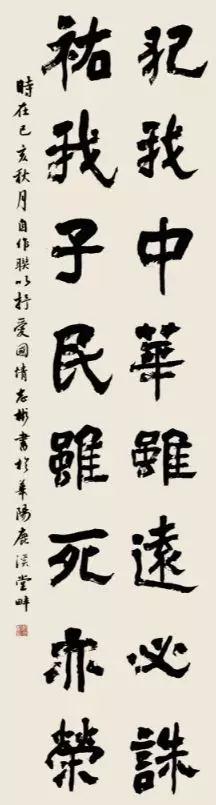 犯我中華雖遠必誅
祐我子民雖死亦榮
時在己亥秋月自作聯以抒愛國情志彬書於華陽鹿溪堂畔